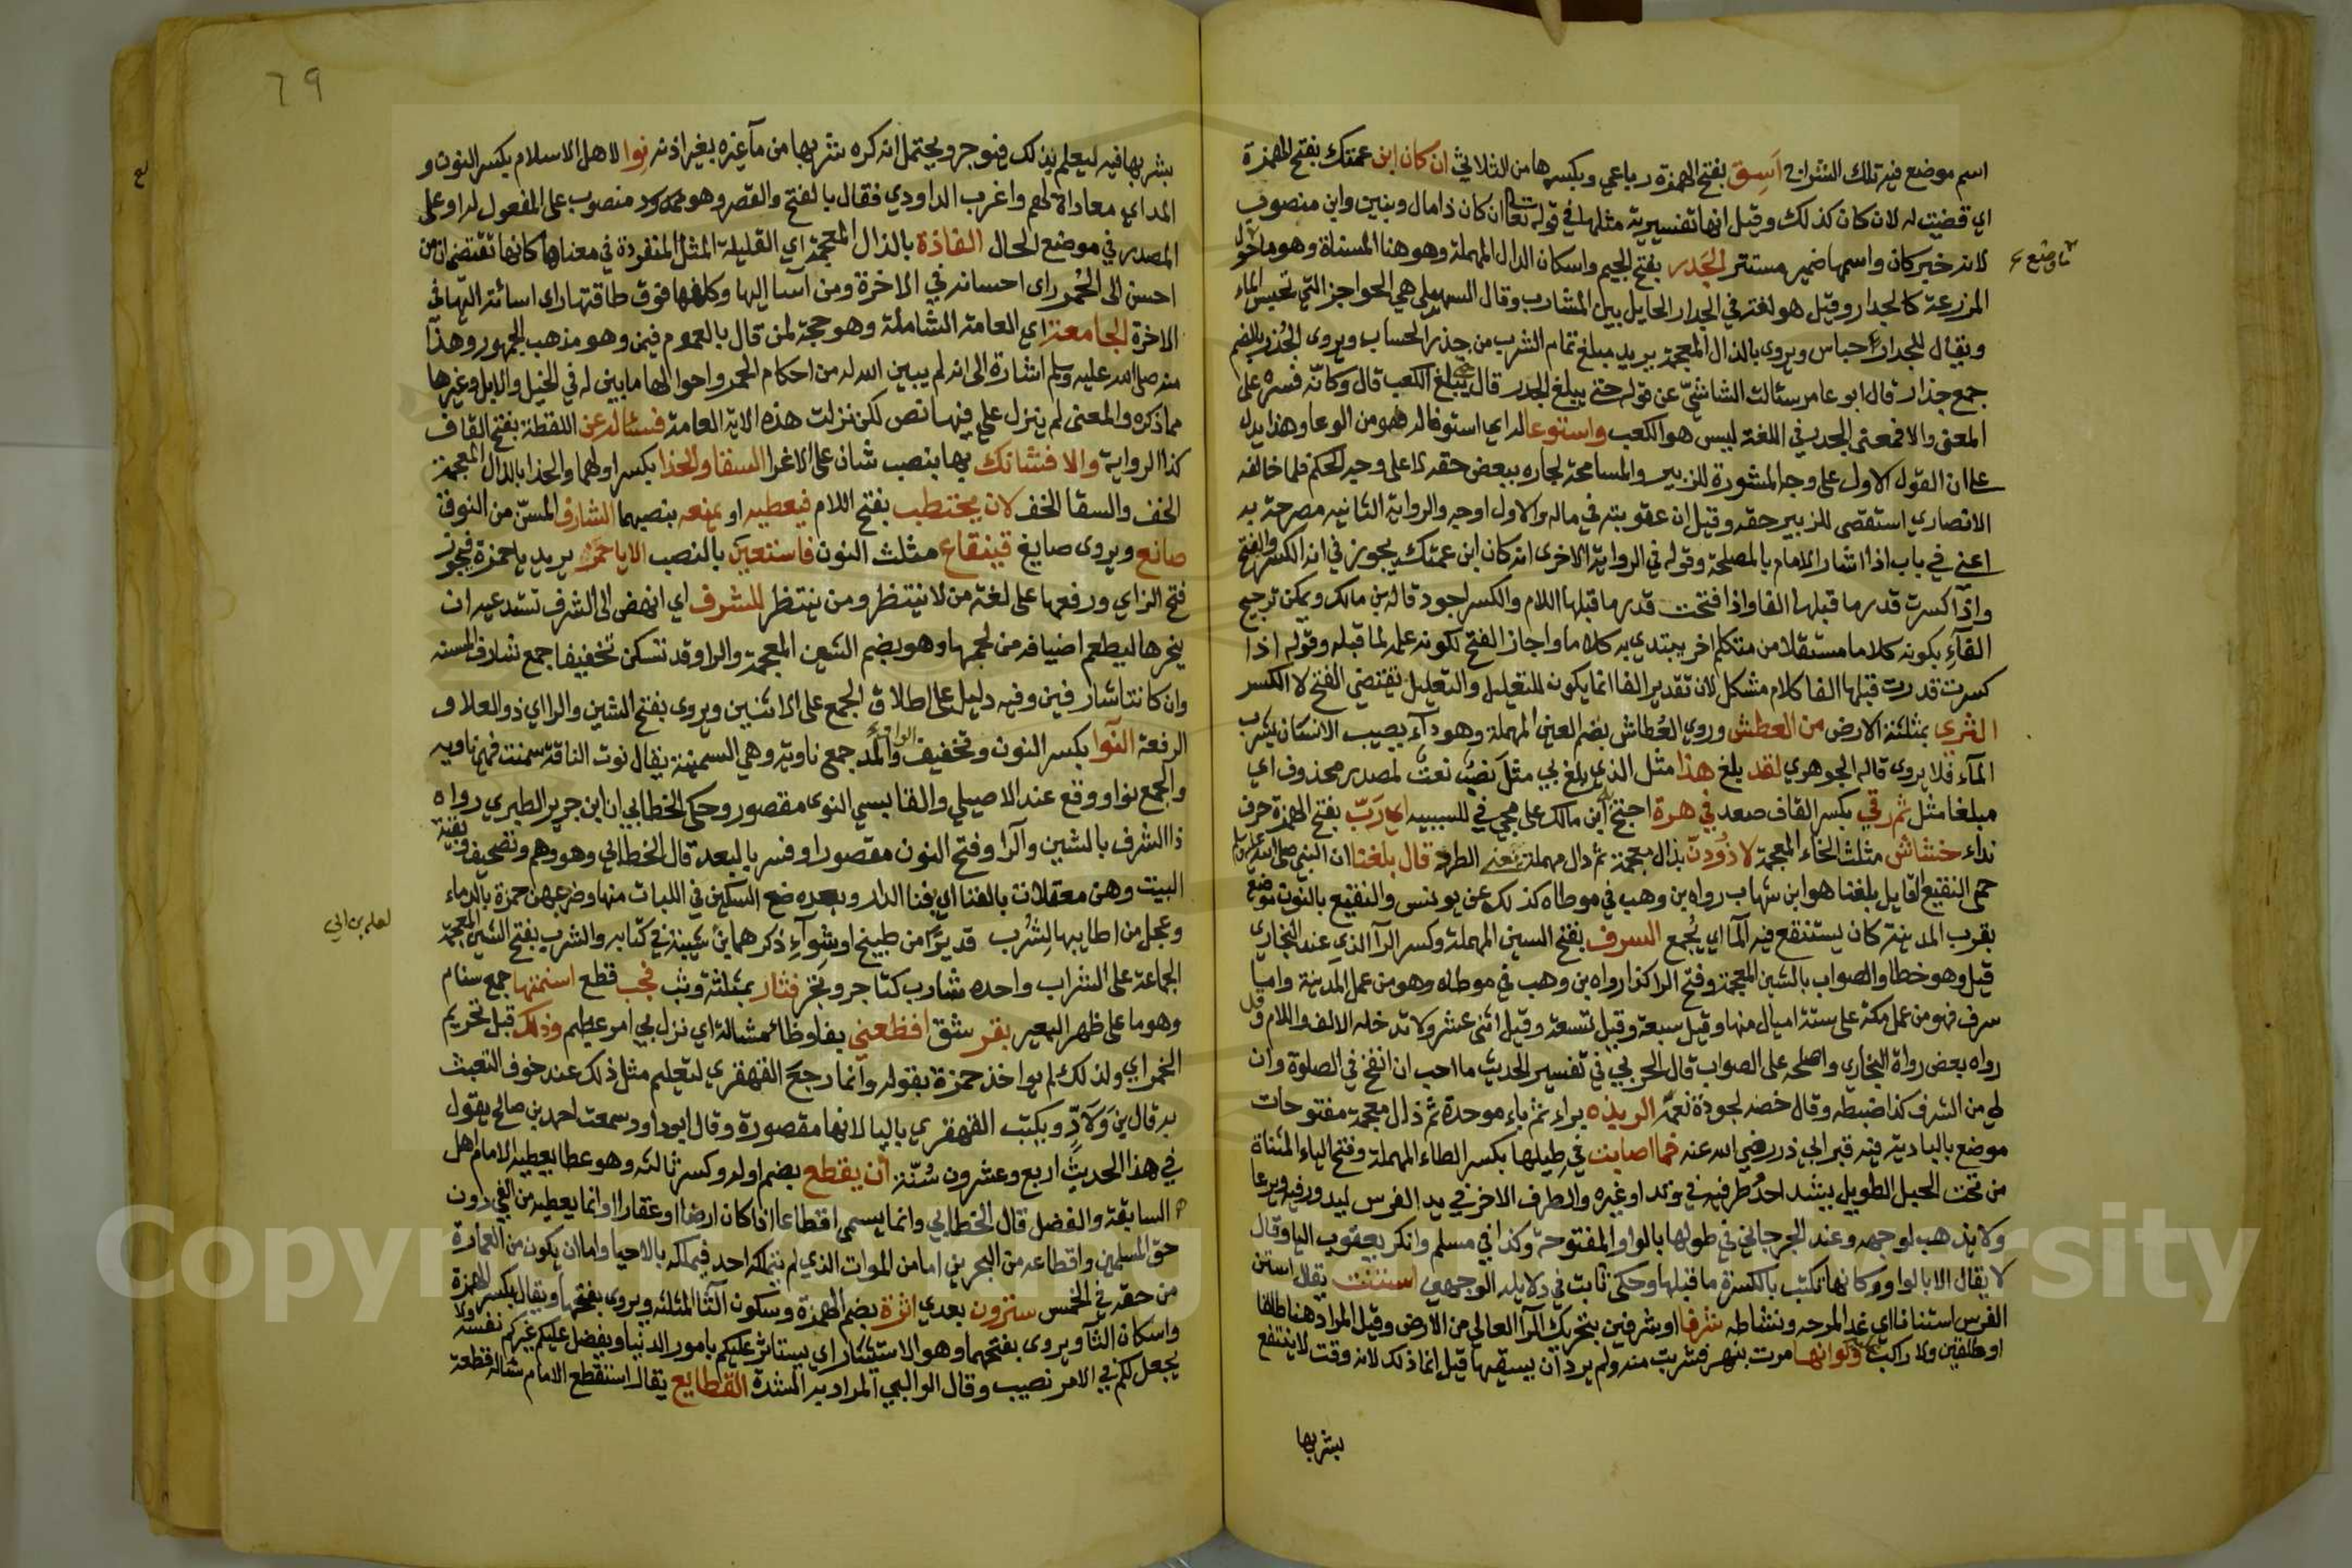 اسم موضع فيه تلك الشراج أَسِق بفتح الهمزة رباعي وبكسرها من الثلاثي ان كان ابن عمتك بفتح الهمزة
اي قضيت له لان كان كذلك وقيل انها تفسيرية مثلها في قوله تعالى ان كان ذا مال وبنين وابن منصوب
لانه خبر كان واسمها ضمير مستتر الجَدر بفتح الجيم واسكان الدال المهملة وهو هنا المسناة وهو ما حول
المزرعة كالجدار وقيل هو لغة في الجدار الحايل بين المشارب وقال السهيلي هي الحواجز التي تحبس الماء
ويقال للجدار احباس ويروى بالذال المعجمة يريد مبلغ تمام الشرب من جذر الحساب ويروى الجُذر بالضم
جمع جذار قال ابو عامر سئالت الشاشيّ عن قوله حتى يبلغ الجدر قال يبلغ الكعب قال وكانّه فسره على
المعنى والا فمعنى الجدر في اللغة ليس هو الكعب واستوعا له اي استوفا له فهو من الوعا وهذا يدل
على ان القول الاول على وجه المشورة للزبير والمسامحة لجاره ببعض حقه لا على وجه الحكم فلما خالفه
الانصاري استقصى للزبير حقه وقيل ان عقوبته في ماله والاول اوجه والرواية الثانيه مصرحة به
اعني في باب اذا اشار الامام بالمصلحة وقوله في الرواية الاخرى انه كان ابن عمتك يجوز في انه الكسر والفتح
واذا كسرت قدر ما قبلها الفا واذا فتحت قدر ما قبلها اللام والكسر اجود قاله بن مالك ويمكن ترجيح
الفآءِ بكونه كلاما مستقلا من متكلم اخر يبتدي به كلاما واجاز الفتح لكونه علة لما قبله وقوله اذا
كسرت قدرت قبلها الفا كلام مشكل لان تقدير الفا انما يكون للتعليل والتعليل تقتضي الفتح لا الكسر
الثرى بمثلثة الارض من العطش وروي العُطاش بضم العين المهملة وهو دآء يصيب الانسان يشرب
المآء فلا يروى قاله الجوهري لقد بلغ هذا مثل الذي بلغ بي مثلَ نصْب نعت لمصدر محذوف اي
مبلغا مثل ثم رقي بكسر القاف صعد في هرة احتج ابن مالك على مجي في للسببيه اي رَبّ بفتح الهمزة حرف
نداء خشاش مثلث الخاء المعجمة لا ذُودنّ بذال معجمة ثم دال مهملة يعني الطرد قال بلغنا ان النبي صلى الله عليه وسلم
حمى النقيع القايل بلغنا هو ابن شهاب رواه بن وهب في موطاه كذلك عن يونس والنقيع بالنون موضع
بقرب المدينة كان يستنقع فيه المآ اي يُجمع السرف بفتح السين المهملة وكسر الرآ الذي عند البخاري
قيل وهو خطا والصواب بالشين المعجمة وفتح الرا كذا رواه بن وهب في موطاه وهو من عمل المدينة واما
سرف فهو من عمل مكة على ستة اميال منها وقيل سبعة وقيل تسعة وقيل اثنى عشر ولا تدخله الالف واللام وقد
رواه بعض رواة البخاري واصلحه على الصواب قال الحربي في تفسير الحديث ما احب ان انفخ في الصلوة وان
لي من الشرف كذا ضبطه وقال خصه لجودة نعمه الربذه براءٍ ثم باءٍ موحدة ثم ذال معجمة مفتوحات
موضع بالبادية فيه قبر ابي ذر رضي الله عنه فما اصابت في طيلها بكسر الطاء المهملة وفتح الياء المثناة
من تحت الحبل الطويل يشد احدُ طرفيه في وتد او غيره والطرف الاخر في يد الفرس ليدور فيه ويرعا
ولا يذهب لوجهه وعند الجرجاني في طولها بالواو المفتوحة وكذا في مسلم وانكر يعقوب اليا وقال
لا يقال الا بالواو وكانها تكتب بالكسرة ما قبلها وحكى ثابت في دلايله الوجهين استنت يقال استن
الفرس استنانا اي عدا لمرحه ونشاطه شرفا او شرفين بتحريك الرآ العالي من الارض وقيل المراد هنا طلقا
او طلقين ولا راكب ولو انها مرت بنهر فشربت منه ولم يرد ان يسقيها قيل انما ذلك لانه وقت لا ينتفع
بشربها
٦٩
بشربها فيه ليعلم بذلك فيوجر ويحتمل انه كره شربها من مآ غيره بغير اذنه نِوا لاهل الاسلام بكسر النون و
المد اي معاداة لهم واغرب الداودي فقال بالفتح والقصر وهو ممدود منصوب على المفعول له او على
المصدر في موضع الحال الفاذة بالذال المعجمة اي القليلة المثل المنفردة في معناها كانها تقتضي ان من
احسن الى الحُمر راى احسانه في الاخرة ومن آسا إليها وكلفها فوق طاقتها راى اسائته اليها في
الاخرة الجامعة اي العامة الشاملة وهو حجة لمن قال بالعموم فيمن وهو مذهب الجمهور وهذا
منه صلى الله عليه وسلم اشارة الى انه لم يبين الله له من احكام الحمر واحوالها ما بين له في الخيل والابل وغيرها
مما ذكره والمعنى لم ينزل علي فيها نص لكن نزلت هذه الاية العامة فسئاله عن اللقطة بفتح القاف
كذا الرواية والا فشانك بها بنصب شان على الاغرا السقا والحذا بكسر اولهما والحذا بالذال المعجمة
الخف والسقا الخف لان يحتطب بفتح اللام فيعطيه او يمنعه بنصبهما الشارف المسنّ من النوق
صانع ويروى صايغ قينقاع مثلث النون فاستعين بالنصب الا يا حمز يريد يا حمزة فيجوز
فتح الزاي ورفعها على لغة من لا ينتظر ومن ينتظر للشرف اي انهض الى الشرف تستدعيه ان
ينحرها ليطعم اضيافه من لحمها وهو بضم الشين المعجمة والرا وقد تسكن تخفيفا جمع شارف المسنه
وان كانتا شارفين وفيه دليل على اطلاق الجمع على الاثنين ويروى بفتح الشين والرا اي ذو العلا و
الرفعة النوا بكسر النون وتخفيف الواو والمد جمع ناوية وهي السمينة يقال نوت الناقة سمنت فهي ناويه
والجمع نوا ووقع عند الاصيلي والقابسي النوى مقصور وحكى الخطابي ان ابن جرير الطبري رواه
ذا الشرف بالشين والرا وفتح النون مقصورا وفسر بالبعد قال الخطابي وهو وهم وتصحيف وبقية
البيت وهن معقلات بالفناءِ اي بفنا الدار وبعده ضع السكين في اللبات منها وضرجهن حمزة بالدماء
وعجل من اطايبها لشَرب قديرًا من طبيخ او شواءِ ذكرهما ابن شيبة في كتابه والشرب بفتح الشين المعجمة
لعله بن ابي
الجماعة على الشراب واحده شارب كتاجر وتجر فثار بمثلثة وثب فجب قطع اسنمتها جمع سنام
وهو ما على ظهر البعير بقر شق افظعني بفا وظا مشالة اي نزل بي امر عظيم وذلك قبل تحريم
الخمر اي ولذلك لم يواخذ حمزة بقوله وانما رجع القهقري لتعليم مثل ذلك عند خوف التعبث
به قال بن ولادٍ ويكتب القهقري باليا لانها مقصورة وقال ابو داود سمعت احمد بن صالح يقول
في هذا الحديث اربع وعشرون سُنّة أن يقطع بضم اوله وكسر ثالثه وهو عطا يعطيه الامام اهل
السابقة والفضل قال الخطابي وانما يسمى اقطاعا اذا كان ارضا او عقارا وانما يعطيه من الفي دون
حق المسلمين واقطاعه من البحرين اما من الموات الذي لم يتملكه احد فيملكه بالاحيا واما ان يكون من العمارة
من حقه في الخمس سترون بعدي اثرة بضم الهمزة وسكون الثا المثلثه ويروى بفتحها ويقال بكسر الهمزة
واسكان الثا ويروى بفتحهما وهو الاستئثار اي يستاثر عليكم بامور الدنيا ويفضل عليكم غيركم نفسه ولا
يجعل لكم في الامر نصيب وقال الوالبي المراد به الشدة القطايع يقال استقطع الامام ساله قطعة